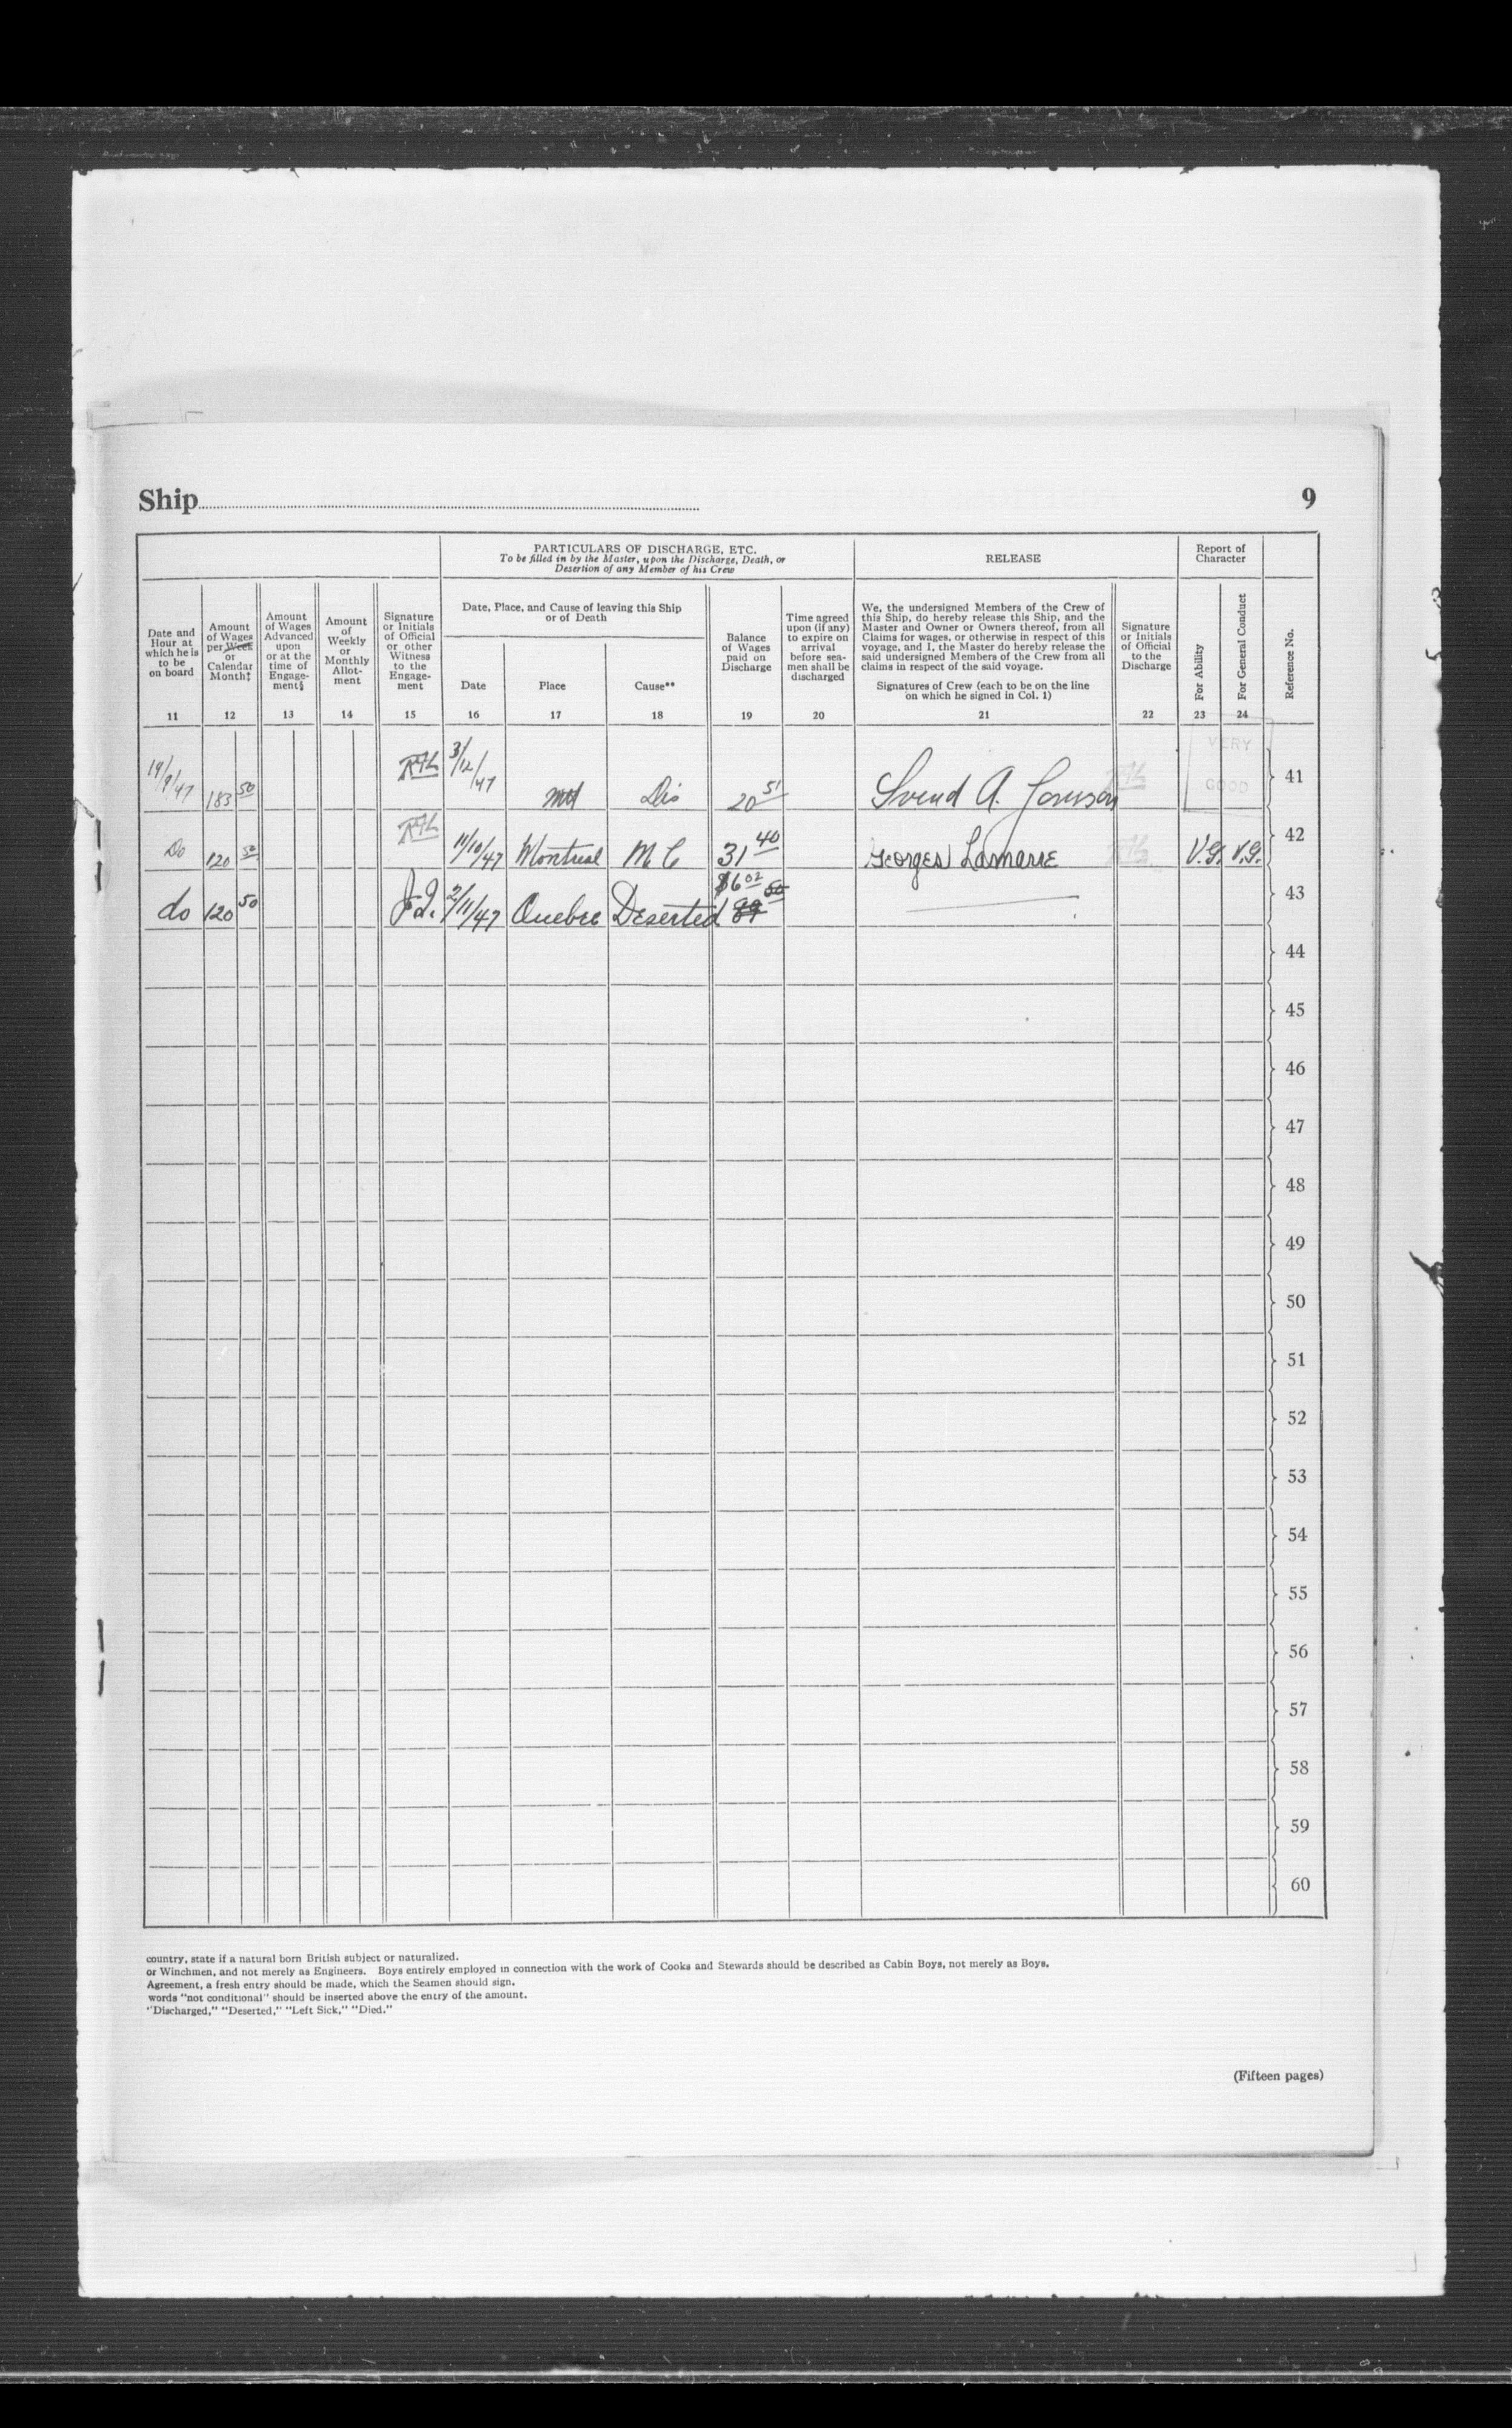 Ship
9
PARTICULARS OF DISCHARGE, ETC.
To be filled in by the Master, upon the Discharge, Death, or
Desertion of any Member of his Crew
RELEASE
Report of
Character
Date and
Hour at
which he is
to be
on board
11
Amount
of Wages
per Week
or
Calendar
Month‡
12
Amount
of Wages
Advanced
upon
or at the
time of
Engage-
ment§
13
Amount
of
Weekly
or
Monthly
Allot-
ment
14
Signature
or Initials
of Official
or other
Witness
to the
Engage-
ment
15
Date, Place, and Cause of leaving this Ship
or of Death
Date
16
Place
17
Cause**
18
Balance
of Wages
paid on
Discharge
19
Time agreed
upon (if any)
to expire on
arrival
before sea-
men shall be
discharged
20
We, the undersigned Members of the Crew of
this Ship, do hereby release this Ship, and the
Master and Owner or Owners thereof, from all
Claims for wages, or otherwise in respect of this
voyage, and I, the Master do hereby release the
said undersigned Members of the Crew from all
claims in respect of the said voyage.
Signatures of Crew (each to be on the line
on which he signed in Col. 1)
21
Signature
or Initials
of Official
to the
Discharge
22
For Ability
23
For General Conduct
24
Reference No.
19/9/47 183 50 3/12/47 Dis 20 51 Svend A. VERY GOOD 41
Do 120 50 11/10/47 Montreal M C 31 40 Georges Lamarre V.G. V.G. 42
do 120 50 2/11/47 Quebec Deserted $6 02 43
44
45
46
47
48
49
50
51
52
53
54
55
56
57
58
59
60
country, state if a natural born British subject or naturalized.
or Winchmen, and not merely as Engineers. Boys entirely employed in connection with the work of Cooks and Stewards should be described as Cabin Boys, not merely as Boys.
Agreement, a fresh entry should be made, which the Seamen should sign.
words "not conditional" should be inserted above the entry of the amount.
"Discharged," "Deserted," "Left Sick," "Died."
(Fifteen pages)